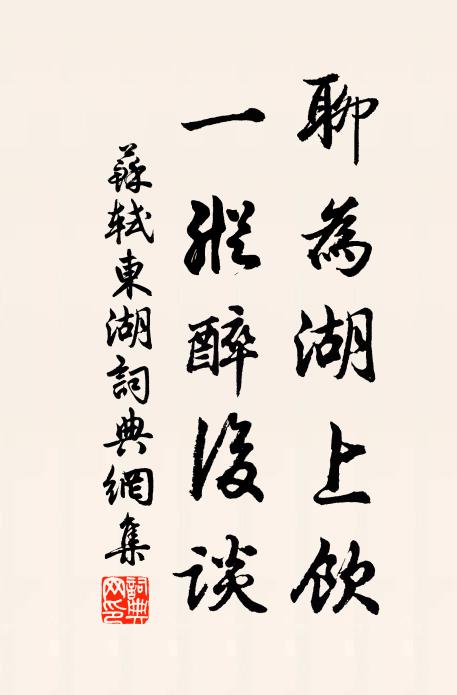 聊為湖上飲
一縱醉後談
蘇軾東湖詞典網集
詞典網印